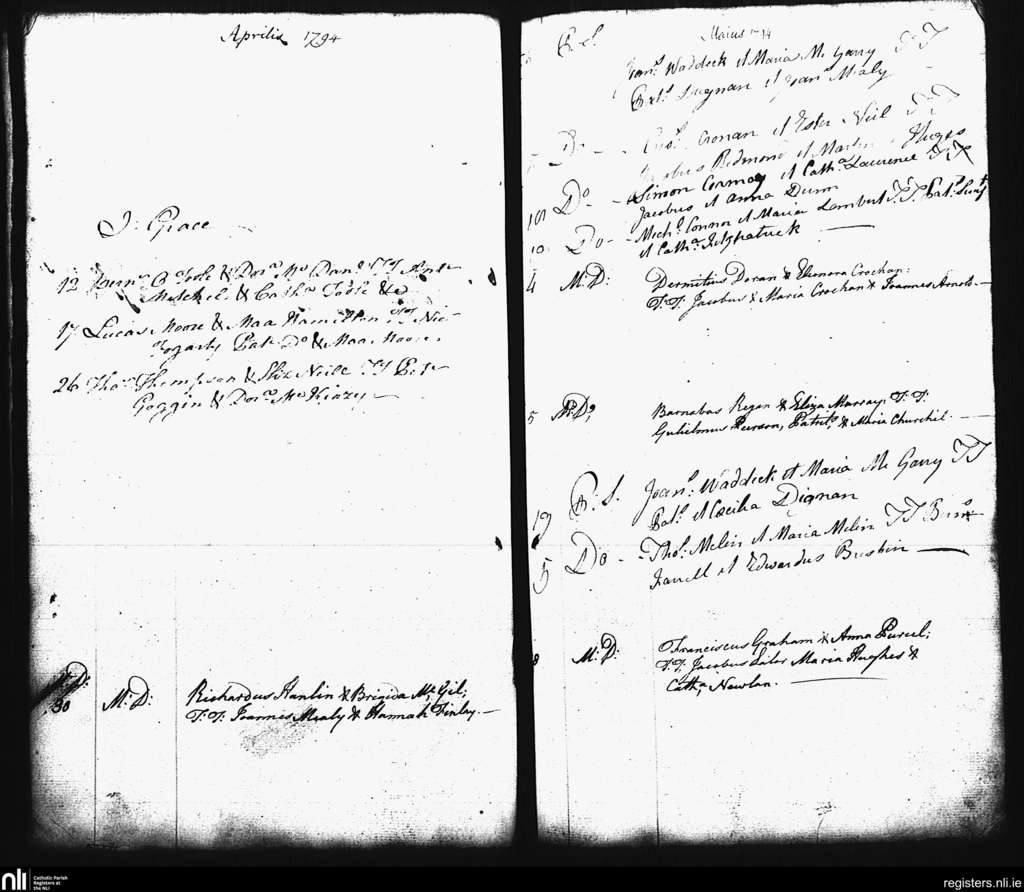 Aprilis 1794
J: Grace
12 Joan.s O Toole & Dor.a Mc Dan.l TT Ant
Mitchel & Cath.a Toole &c
17 Lucas Moore & Maa Hamilton TT Nic
Fogarty Pat: Do & Maa Moore.
26 Tho.s Thompson & Eliz Neill TT Pet
Goggin & Dor.a Mc Kinzy —
30 M: D: Richardus Hanlin & Brigida Mc Gil;
T: T: Joannes Mealy & Hannah Finlay. —
Maius 1794
Joan.s Waddeck et Maria Mc Garry TT
Pat.s Dignan et Joan.s Mealy
Cronan et Ester Neil TT
Jacobus Redmond et Martin Hughes
10 Do — Simon Cormay et Cath.a Laurence TT
Jacobus et Anna Dunn
10 Do — Mich.l Connor et Maria Lambert TT Pat.s
et Cath.a Fitzpatrick —
4 M: D: Dermitius Doran & Elenora Crochan:
T: T: Jacobus & Maria Crochan & Joannes Arnols. —
5 M: D: Barnabas Regan & Eliza Murray. T: T:
Gulielmus Pearson, Patri.s & Maria Churchil. —
19 B: S. Joan.s: Waddeck et Maria Mc Garry TT
Pat.s et Cecilia Dignan
5 Do — Tho.s: Melin et Maria Melin TT
Farrell et Edwardus Busbin —
8 M: D: Franciscus Graham & Anna Purcel;
T: T: Jacobus Lalor Maria Hughes &
Cath.a Newlan.
nli Catholic Parish
Registers at
the NLI
registers.nli.ie